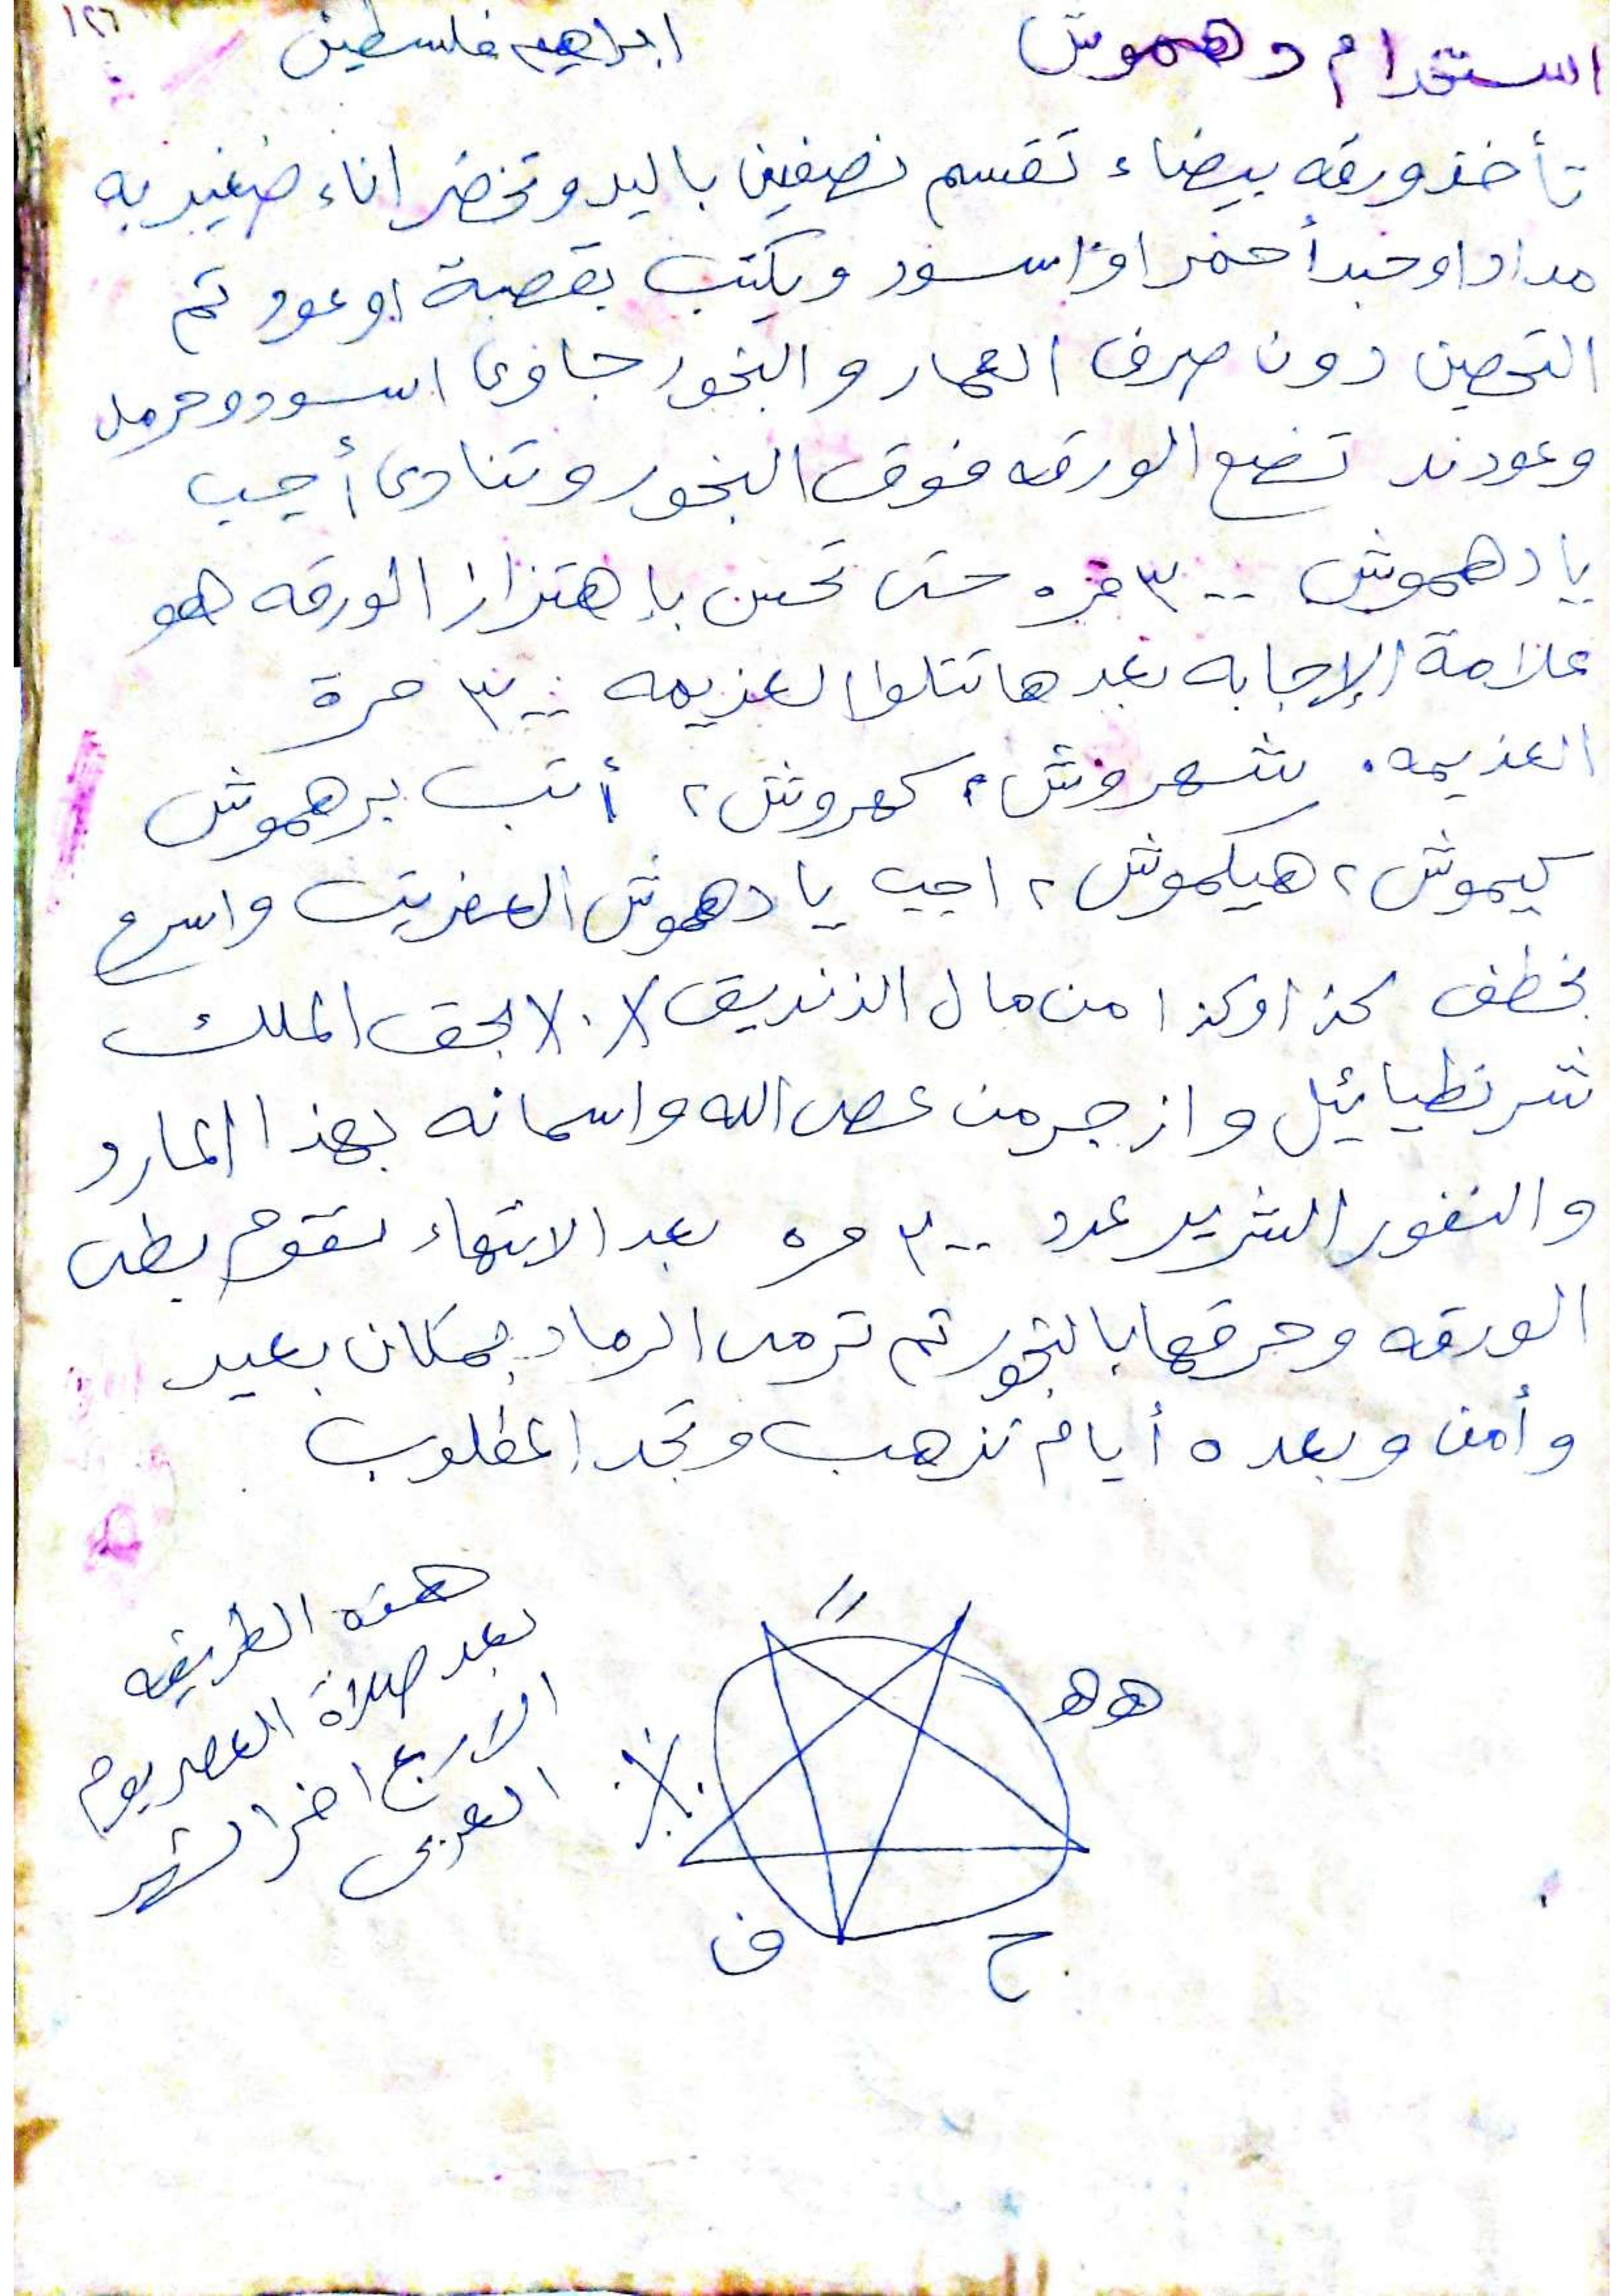 ١٢٦
استخدام دهموش ابراهيم فلسطين
تأخذ ورقه بيضاء تقسم نصفين باليد وتحضر اناء صغير به
مدادا وحبر أحمر او اسود ويكتب بقصبة او عود ثم
التحصين دون صرف العمار والبخور جاوى اسود وحرمل
وعود ند تضع الورقه فوق البخور وتنادى أجيب
يا دهموش ٣٠٠ مره حتى تحس بإهتزاز الورقه هو
علامة الإجابه بعدها تتلوا العزيمه ٣٠٠ مرة
العزيمه. شهروش، كهروش، أتب برهموش
كيموش، هيكموش، اجيب يا دهموش العفريت واسرع
بخطف كذا وكذا من مال الزنديق بحق الملك
شرنطيائيل وازجر من عصى الله واسمائه بهذا المارد
والنفور الشريد عدد ٣٠٠ مره بعد الانتهاء تقوم بطى
الورقه وحرقها بالبخور ثم ترمى الرماد بمكان بعيد
وأمن وبعد ٥ أيام تذهب وتجد المطلوب
هذه الطريقه
بعد صلاة العصر يوم
الاربع اخر الشهر
العربى
١١
هه
ح
ف